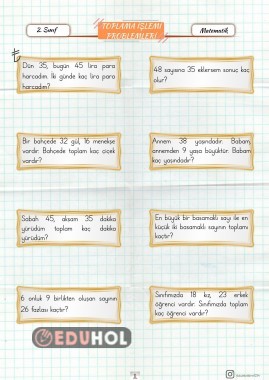 2. Sınıf
TOPLAMA İŞLEMİ
PROBLEMLERİ
Matematik
Dün 35, bugün 45 lira para
harcadım. İki günde kaç lira para
harcadım?
48 sayısına 35 eklersem sonuç kaç
olur?
Bir bahçede 32 gül, 16 menekşe
vardır. Bahçede toplam kaç çiçek
vardır?
Annem 38 yaşındadır. Babam,
annemden 9 yaş büyüktür. Babam
kaç yaşındadır?
Sabah 45, akşam 35 dakika
yürüdüm toplam kaç dakika
yürüdüm?
En büyük bir basamaklı sayı ile en
küçük iki basamaklı sayının toplamı
kaçtır?
6 onluk 9 birlikten oluşan sayının
26 fazlası kaçtır?
Sınıfımızda 18 kız, 23 erkek
öğrenci vardır. Sınıfımızda toplam
kaç öğrenci vardır?
EDUHOL